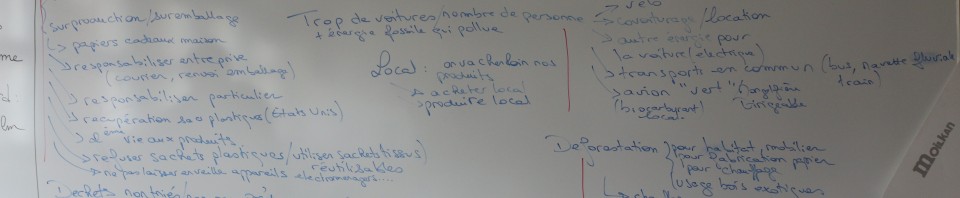 me
lm
Surproduction/suremballage
↳ papiers cadeaux maison
↳ responsabiliser entreprise
(courrier, renvoi emballage)
↳ responsabiliser particulier
↳ recupération sac plastiques (États Unis)
↳ 2ème vie aux produits
↳ refuser sachets plastiques/utiliser sachets tissus)
réutilisables
↳ ne pas laisser en veille appareils electromenagers....
Dechets non triés/
Trop de voitures/nombre de personne
+ énergie fossile qui pollue
Local: on va chercher loin nos
produits
→ acheter local
→ produire local
→ velo
→ covoiturage/location
→ autre énergie pour
la voiture (électrique)
→ transports en commun (bus, navette fluviale
train)
→ avion "vert"
(biocarburant) dirigeable
local
Deforestation pour habitat, mobilier
pour fabrication papier
pour chauffage
usage bois exotiques
MOKKAN